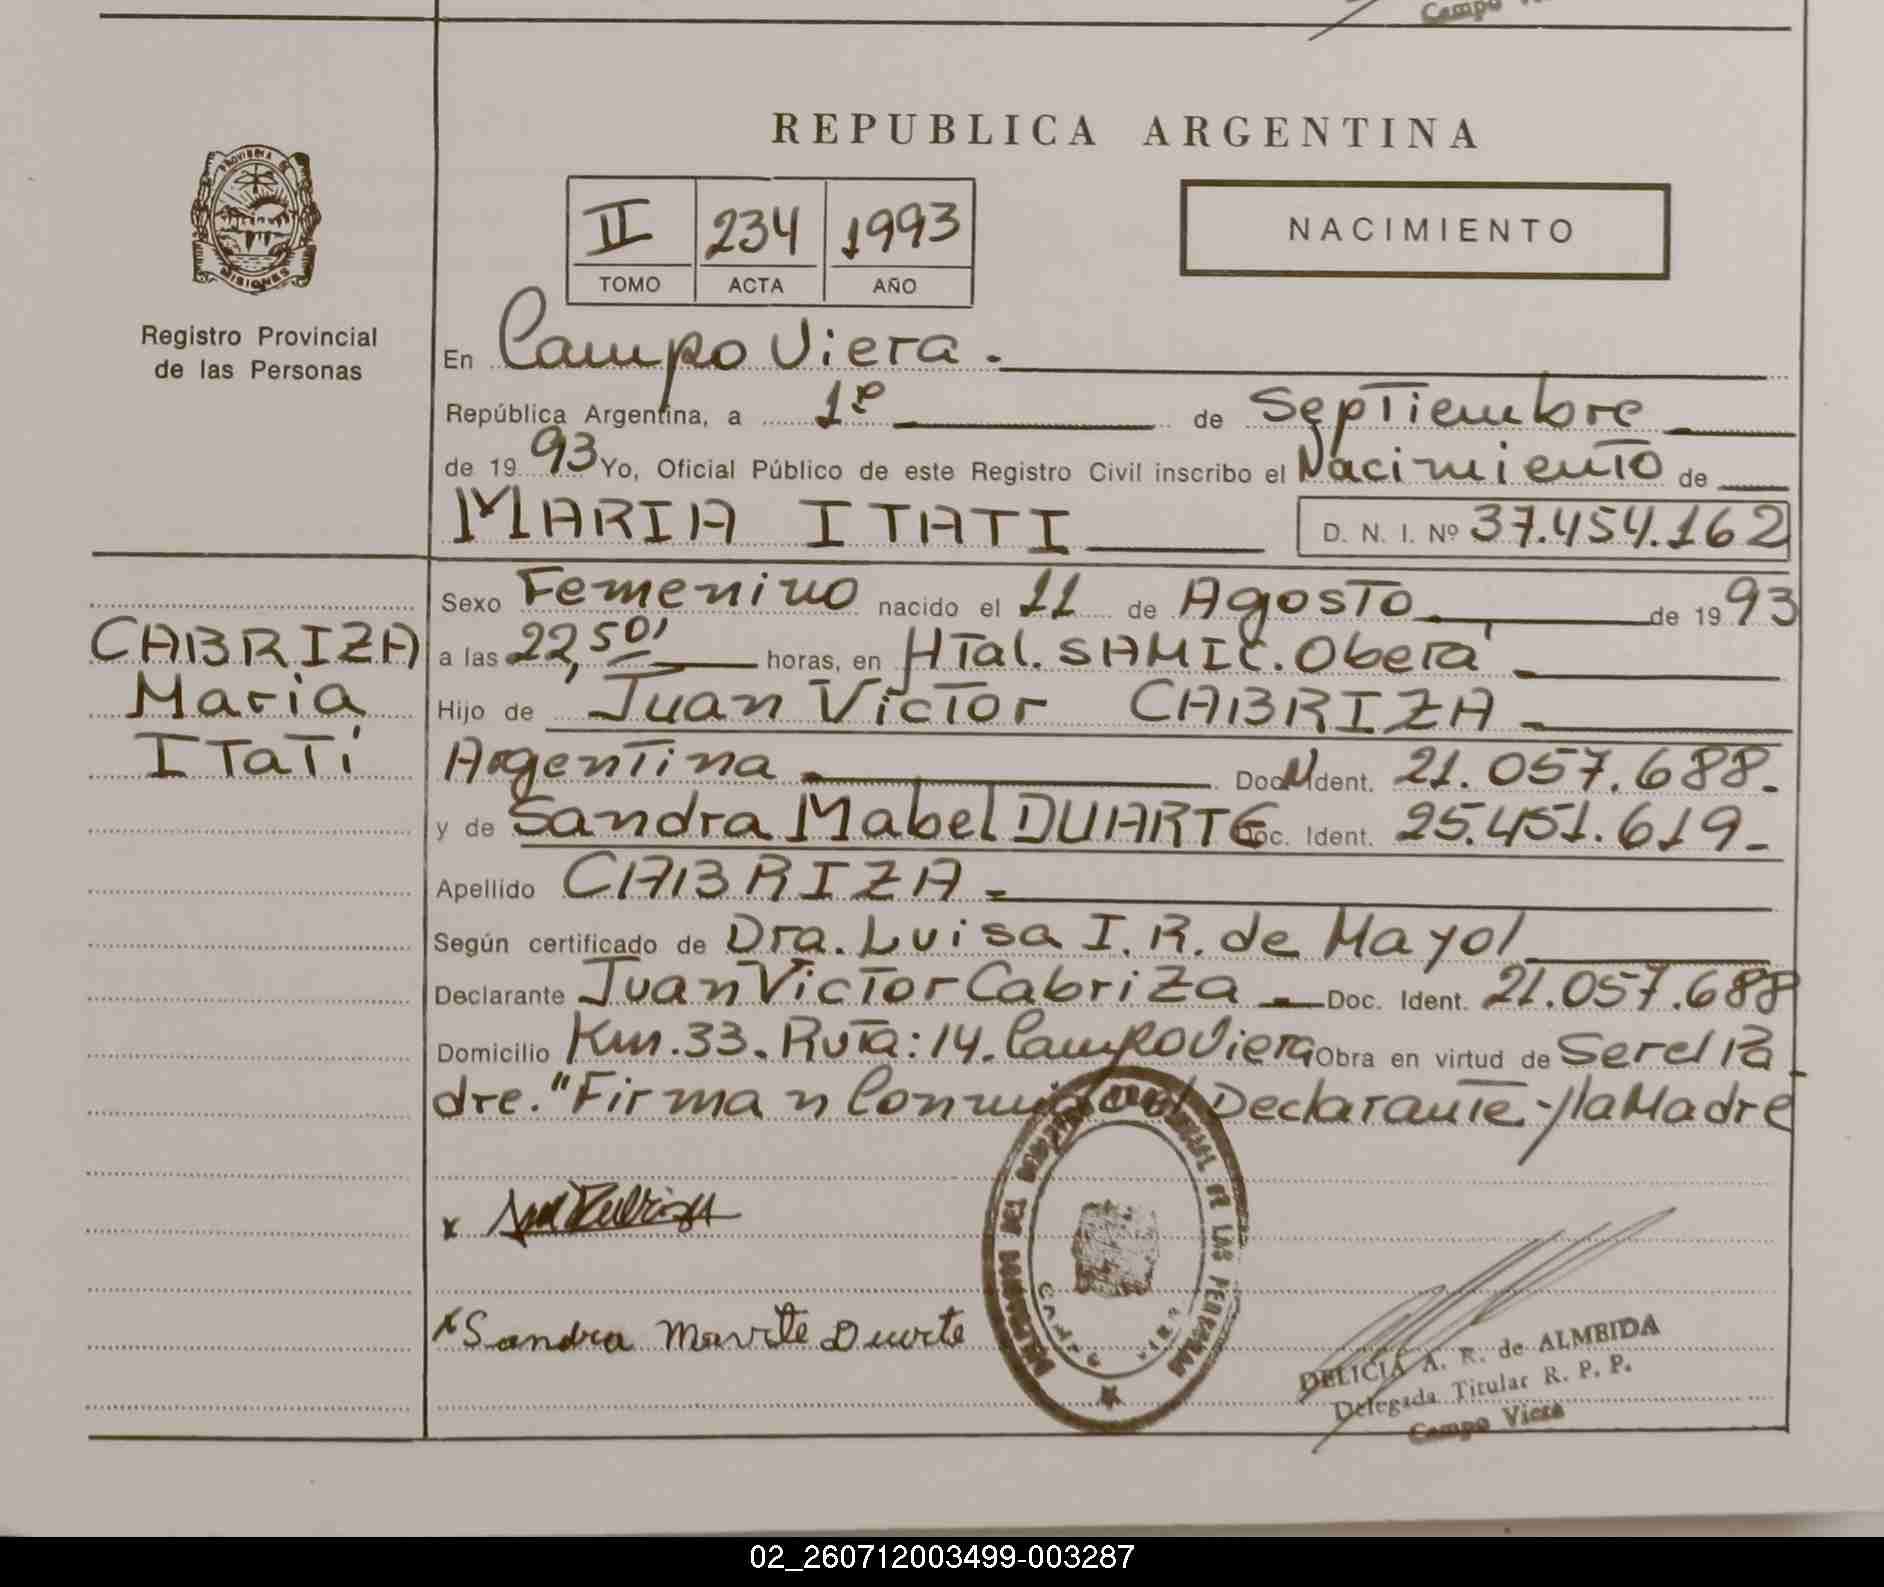 Campo
REPUBLICA ARGENTINA
PROVINCIA DE
MISIONES
II 234 1993
TOMO ACTA AÑO
NACIMIENTO
Registro Provincial
de las Personas
En Campo Viera.
República Argentina, a 1º de Septiembre
de 1993 Yo, Oficial Público de este Registro Civil inscribo el Nacimiento de
MARIA ITATI D. N. I. Nº 37.454.162
CABRIZA
Maria
ITaTí
Sexo Femenino nacido el 11 de Agosto de 1993
a las 22,50' horas, en HTal. SAMIC. Oberá
Hijo de Juan Victor CABRIZA
Argentina Doc. N Ident. 21.057.688.
y de Sandra Mabel DUARTE Doc. Ident. 25.451.619
Apellido CABRIZA
Según certificado de Dra. Luisa I. R. de Mayol
Declarante Juan Victor Cabriza Doc. Ident. 21.057.688
Domicilio Km. 33. Ruta: 14. Campo Viera Obra en virtud de Ser el Pa
dre. "Firman Conmigo el Declarante y la Madre
x
x Sandra Duarte
DE LAS PERSONAS
DELICIA A. R. de ALMEIDA
Delegada Titular R. P. P.
Campo Viera
02_260712003499-003287